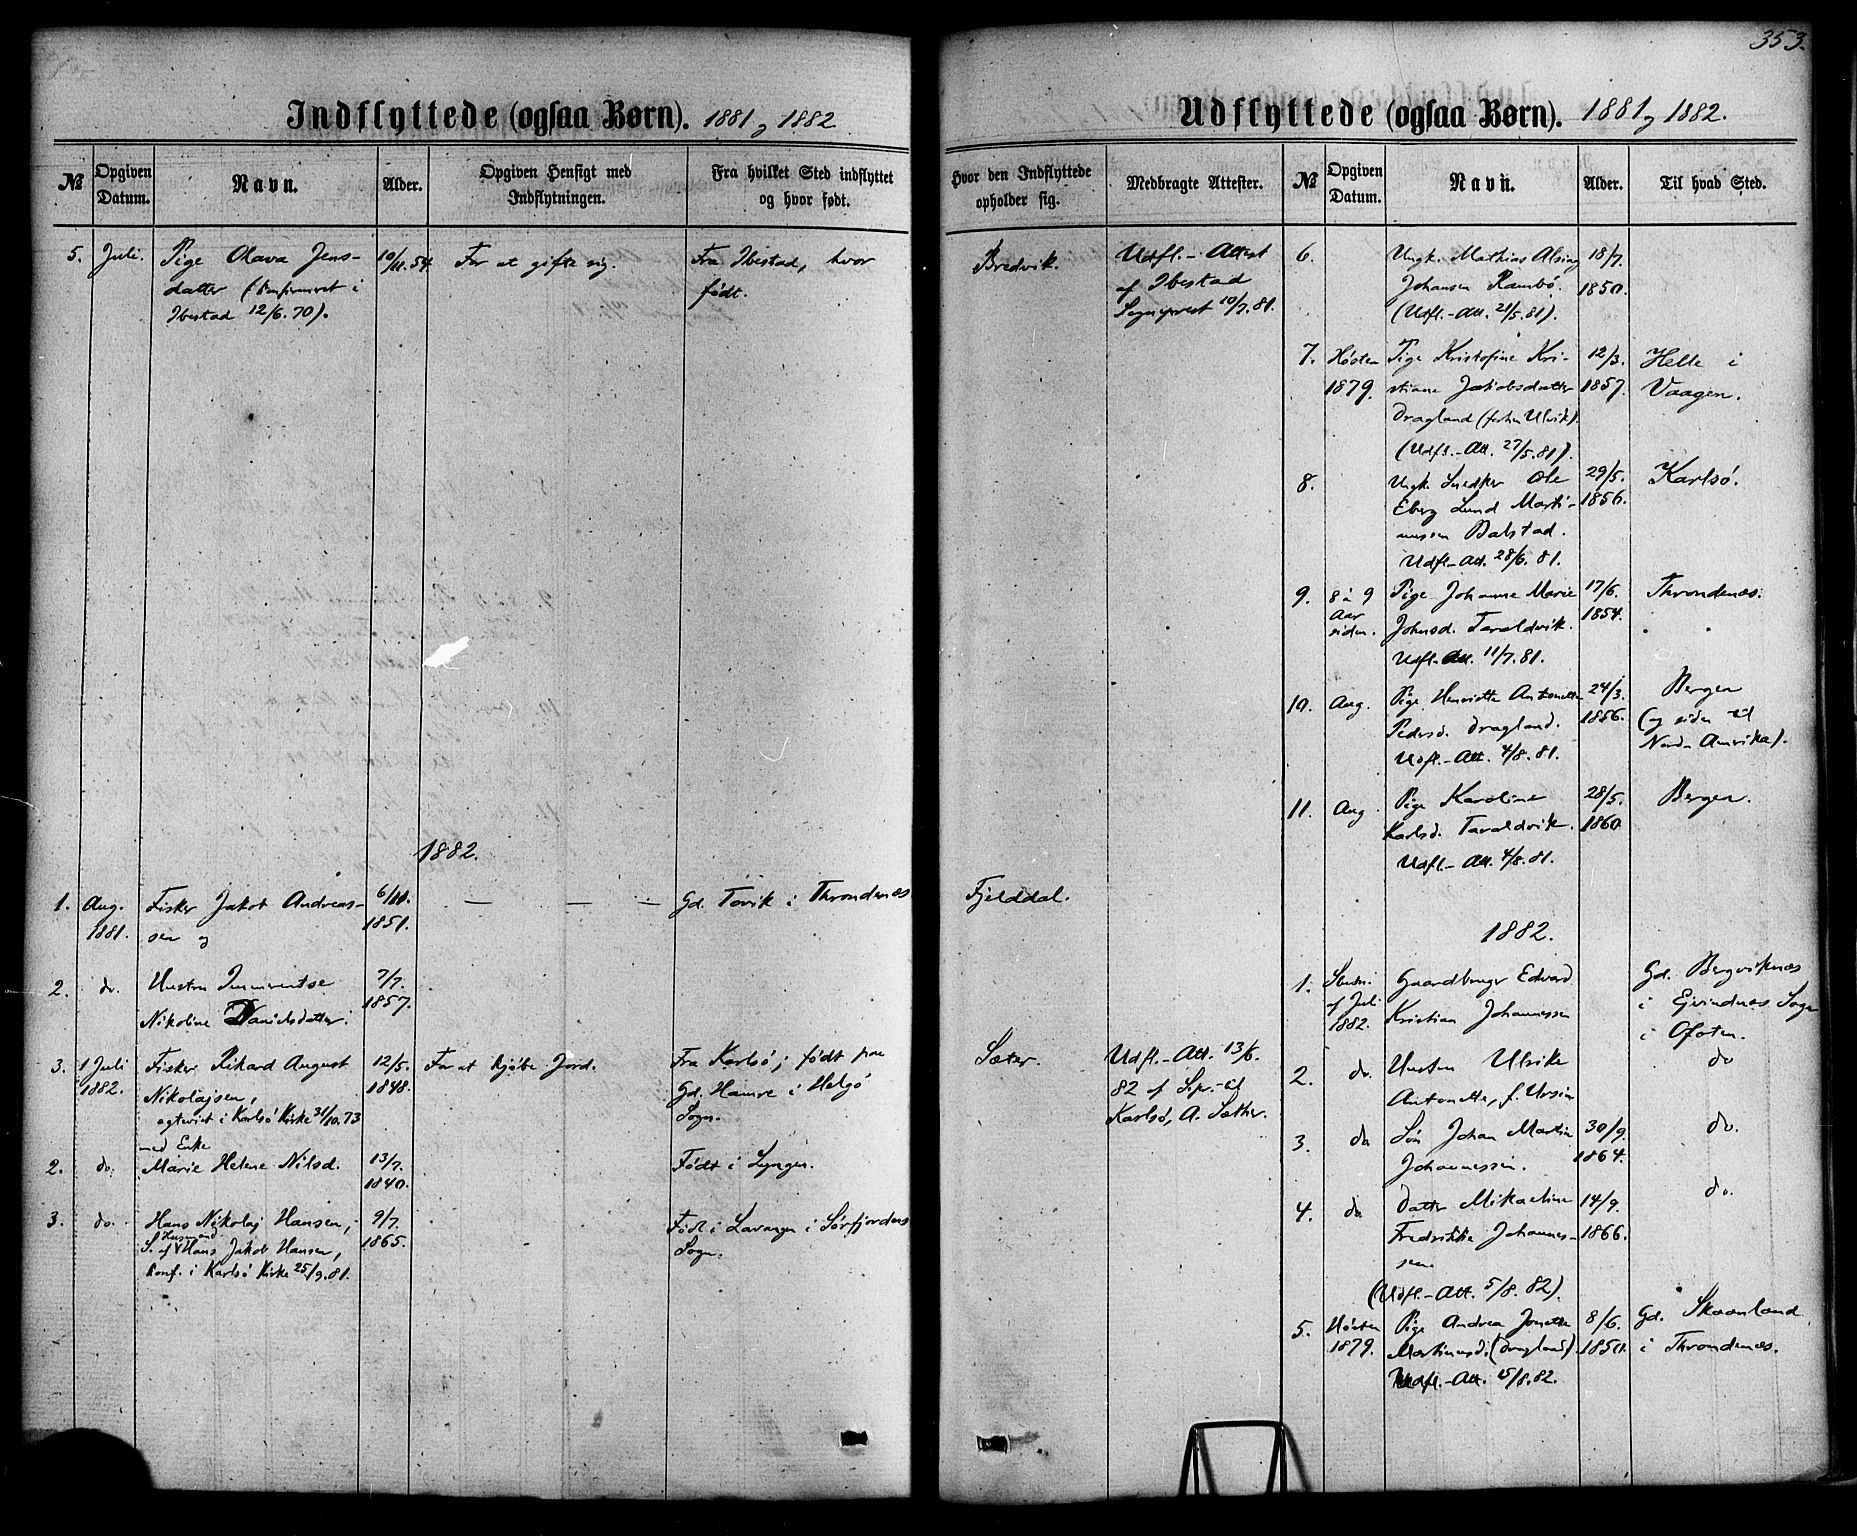 353.
Indflyttede (ogsaa Børn). 1881 og 1882
№ Opgiven Datum. Navn. Alder. Opgiven Hensigt med Indflytningen. Fra hvilket Sted indflyttet og hvor født. Hvor den Indflyttede opholder sig. Medbragte Attester.
5. Juli. Pige Olava Jens- 10/11.54 For at gifte sig. Fra Ibestad, hvor Bredvik. Udfl.-Attest
datter (konfirmeret i født. af Ibestad
Ibestad 12/6.70). Sogneprest 10/7.81.
1882.
1. Aug. Fisker Jakob Andreas- 6/10. — — — Gd. Tovik i Throndenæs Fjelddal.
1881. sen og 1851.
2. do. Hustru 7/7.
Nikoline Danielsdatter. 1857.
3. 1 Juli Fisker Rikard August 12/5. For at kjøbe Jord. Fra Karlsø; født paa Sæter. Udfl.-Att. 13/6.
1882. Nikolajsen, 1848. Gd. Hamre i Helgø 82 af Spr. til
ægteviet i Karlsø Kirke 31/10.73 Sogn. Karlsø, A. Sæther.
med Enke
2. do. Marie Helene Nilsd. 13/7. Født i Lyngen.
1840.
3. do. Hans Nikolaj Hansen, 9/7. Født i Lavangen i Sørfjordens
Husmand
S. af Hans Jakob Hansen, 1865. Sogn.
konf. i Karlsø Kirke 25/9.81.
Udflyttede (ogsaa Børn). 1881 og 1882.
№ Opgiven Datum. Navn. Alder. Til hvad Sted.
6. Ungk. Mathias Alsing 18/7.
Johansen Rambø. 1850.
(Udfl.-Att. 21/5.81).
7. Høsten Pige Kristofine Kri- 12/3. Helle i
1879. stiane Jakobsdatter 1857. Vaagen.
Dragland (før Ulvik).
(Udfl.-Att. 27/5.81).
8. Ungk. Snedker Ole 29/5. Karlsø.
Eberg Lund Marti- 1856.
nussen Balstad.
Udfl-Att. 28/6.81.
9. 8 à 9 Pige Johanne Marie 17/6. Throndenæs.
Aar Johnsd. Taraldsvik. 1854.
siden. Udfl.-Att. 11/7.81.
10. Aug. Pige Henriette Antonette 24/3. Bergen
Pedersd. Dragland. 1856. (og siden til
Udfl.-Att. 4/8.81. Nord-Amerika).
11. Aug. Pige Karoline 28/5. Bergen.
Karlsd. Taraldsvik. 1860.
Udfl-Att. 4/8.81.
1882.
1. Slutn. Gaardbruger Edvard Gd. Bergviknæs
af Juli Kristian Johannessen i Evindnæs Sogn
1882. i Ofoten.
2. do. Hustru Ulrikke do
Antonette, f. Ursin
3. do Søn Johan Martin 30/9. do.
Johannessen. 1864.
4. do Datter Mikaeline 14/9. do.
Fredrikke Johannes- 1866.
sen.
(Udfl.-Att. 5/8.82).
5. Høsten Pige Andrea Jonette 8/6. Gd. Skaanland
1879. Martinusd. (Dragland) 1850. i Throndenæs.
Udfl.-Att. 15/8.82.